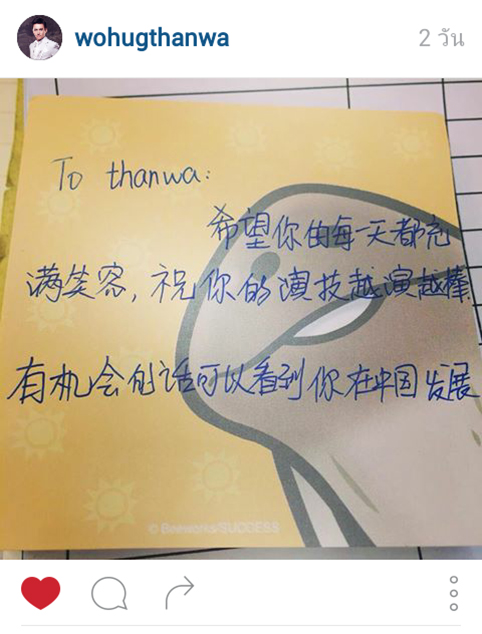 wohugthanwa
2 วัน
To thanwa:
希望你的每一天都充
满笑容，祝你的演技越演越棒
有机会的话可以看到你在中国发展
© Beeworks/SUCCESS